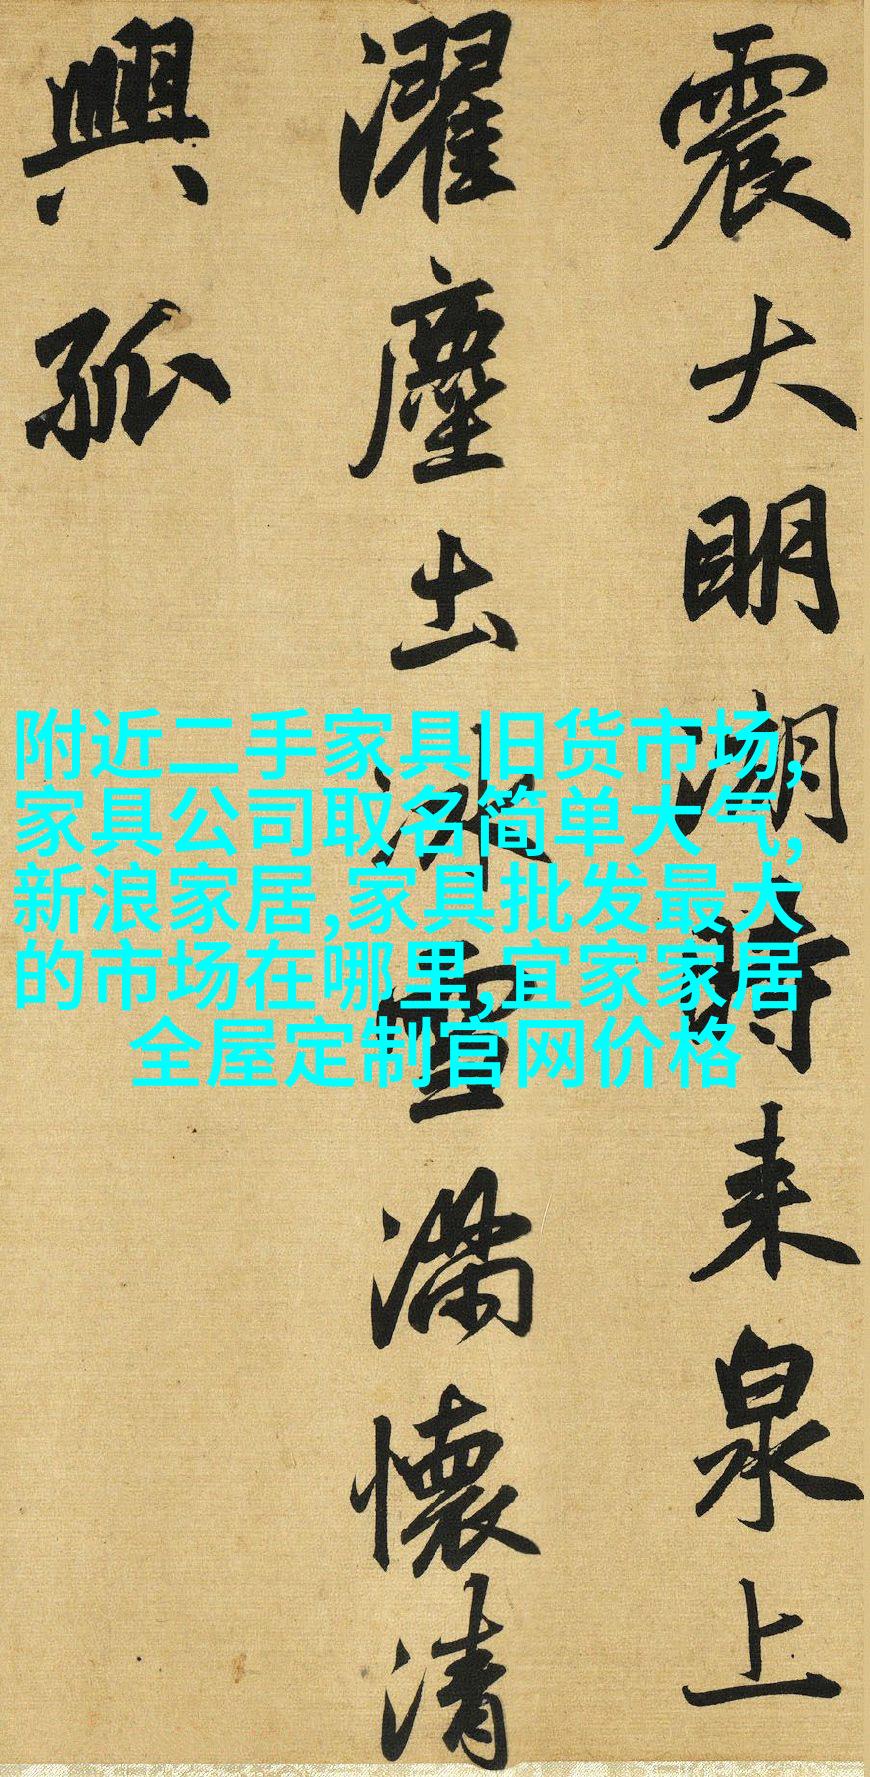 震大明湖時来泉上
濯塵土冰雪滿懷清
興孤
附近二手家具旧货市场,
家具公司取名简单大气,
新浪家居,家具批发最大
的市场在哪里,宜家家居
全屋定制官网价格